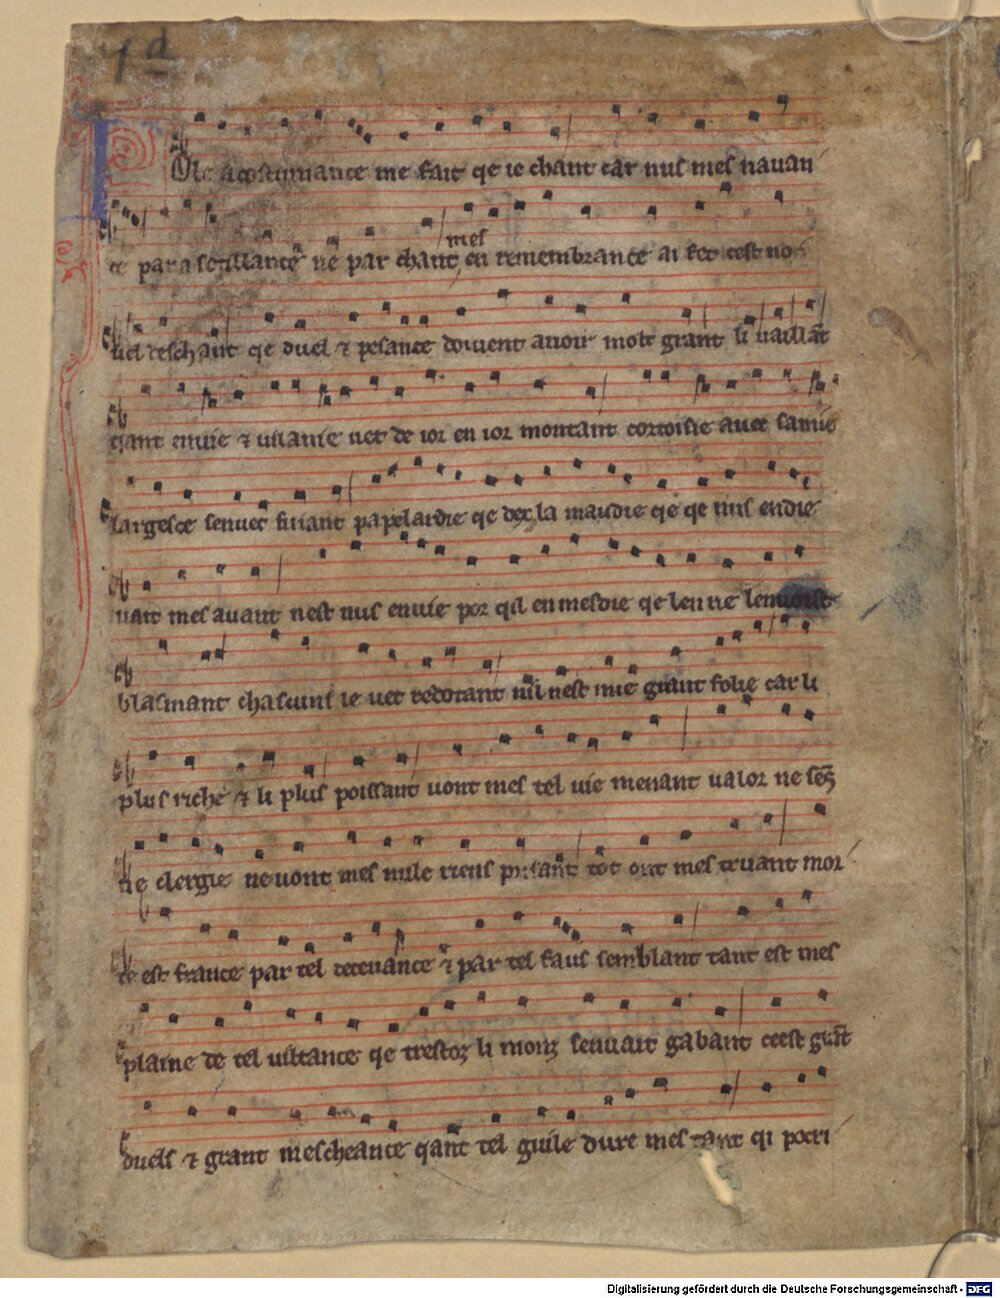 1d
Ole acostumance me fait qe ie chant car nus mes nauan
ce par asonllance ne par chant mes en remembrance ai fet cest no
uel deschant qe duel ⁊ pesance doiuent auoir molt grant li uaillāt
qant enuie ⁊ uilanie uet de ior en ior montant cortoisie auec samie
largesce senuet fuiant papelardie qe dex la maudie qe qe nus endie
uait mes auant nest nus enuie por qil en mesdie qe len ne len
blasmant chascuns ie uet redotant nest mie grant folie car li
plus riche ⁊ li plus poissant uont mes tel vie menant ualor ne sēs
ne clergie ne uont mes nule riens prisant tot ont mes truant mor
te est france par tel deceuance ⁊ par tel faus semblant tant est mes
plaine de tel uiltance qe trestoz li monz senuait gabant ceest grāt
duels ⁊ grant mescheance qant tel guile dure mes tant qi pocri
Digitalisierung gefördert durch die Deutsche Forschungsgemeinschaft - DFG